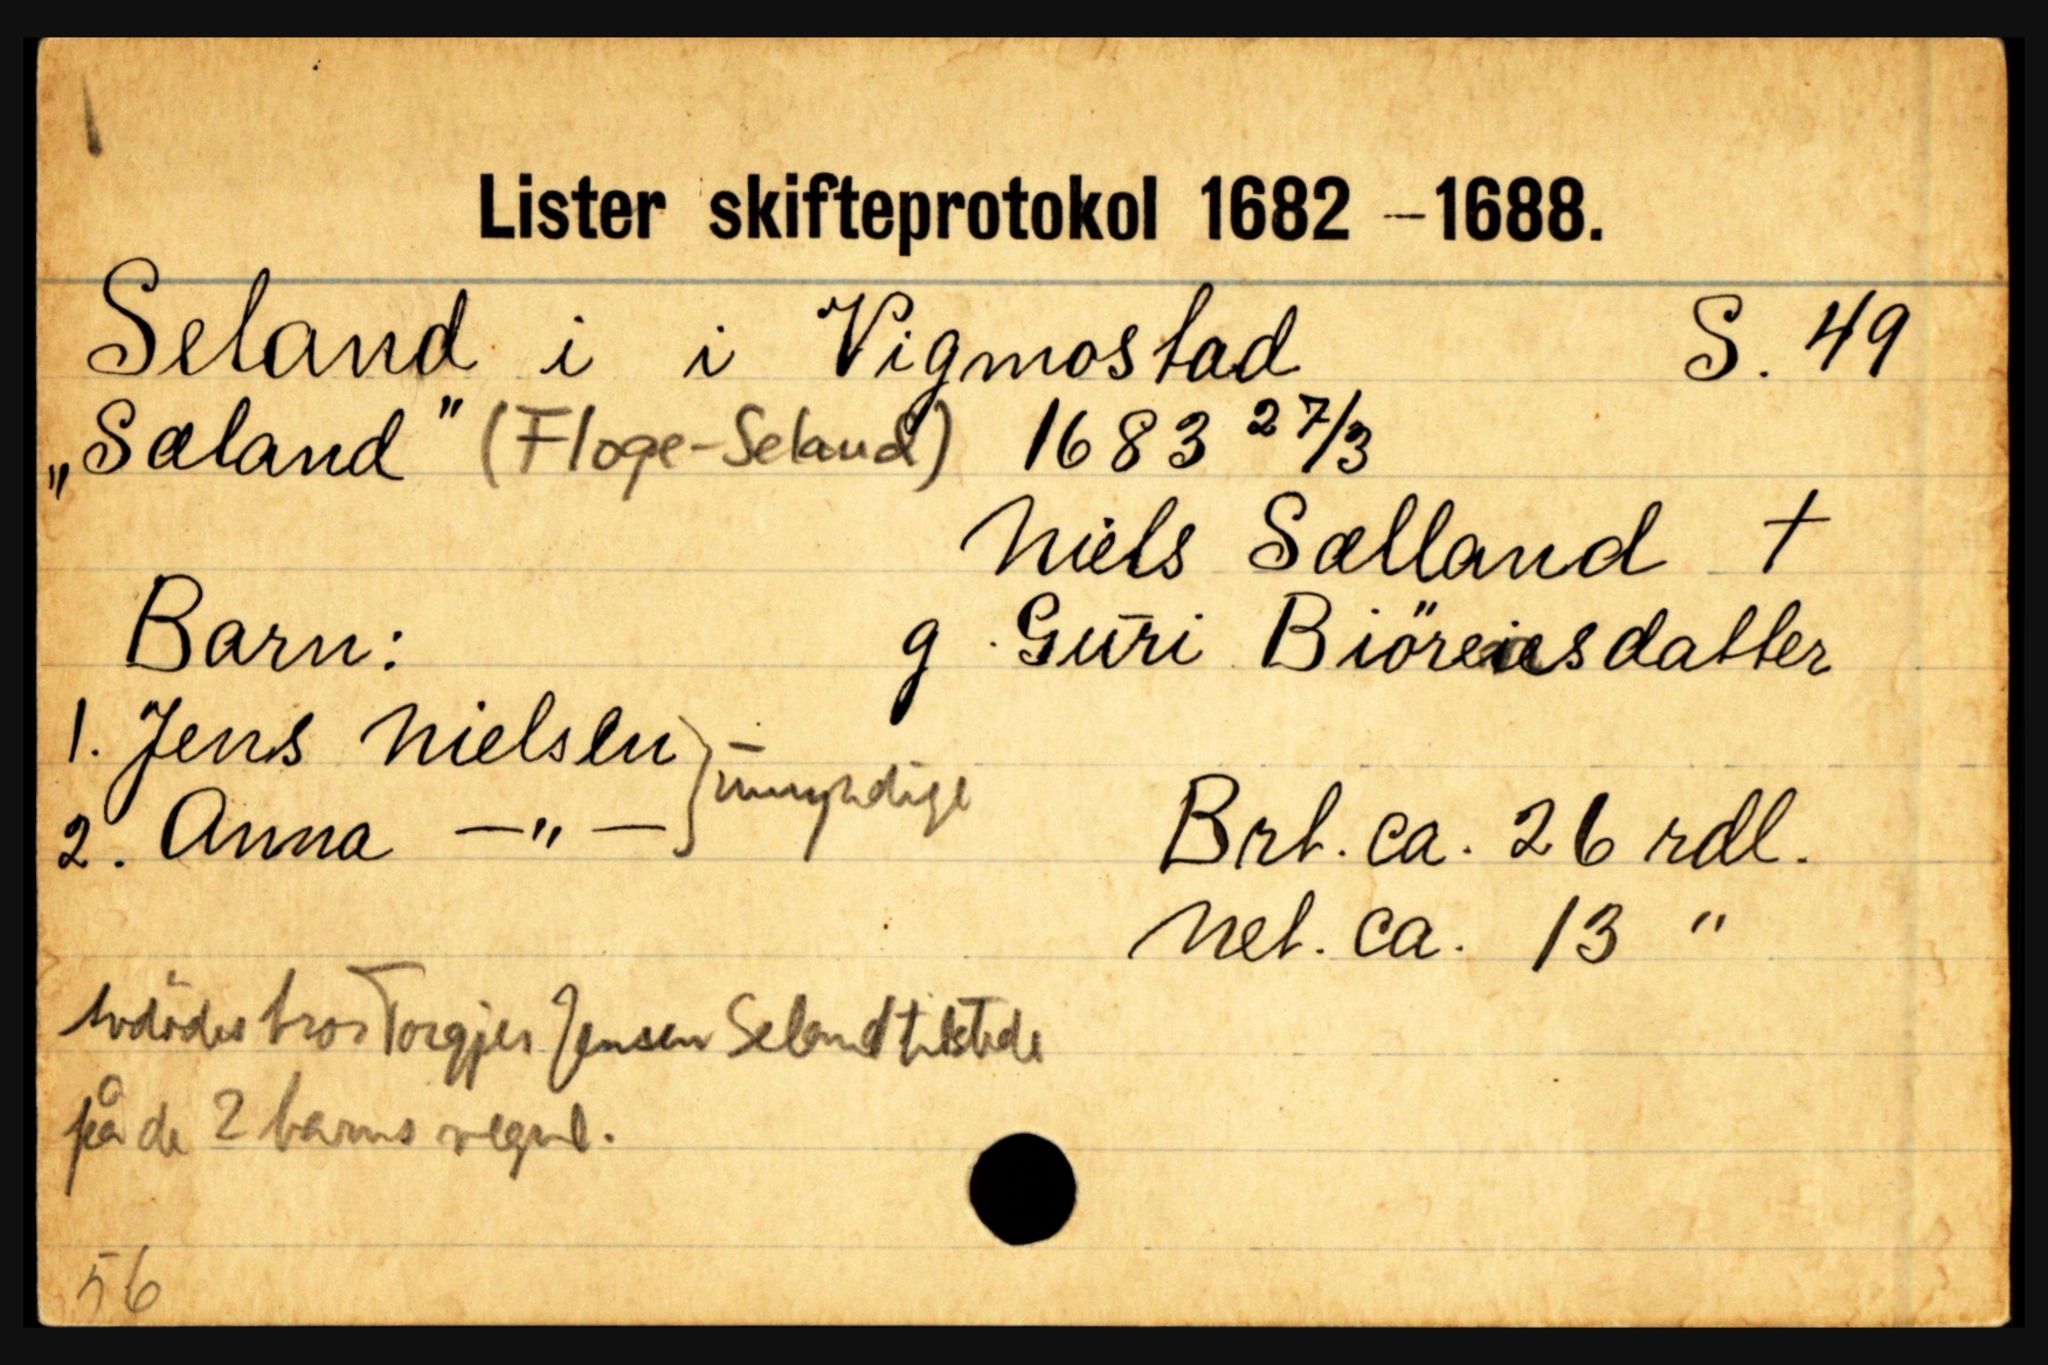 Lister skifteprotokol 1682 – 1688.
Seland i i Vigmostad S. 49
„Sæland" (Floge-Seland) 1683 27/3
Niels Sælland †
Barn: g Guri Biörensdatter
1. Jens Nielsen
umyndige
2. Anna —„—
Brt. ca. 26 rdl.
Net. ca. 13 "
Avdødes bror Torgjer Jensen Seland tilstede
på de 2 barns vegne.
56